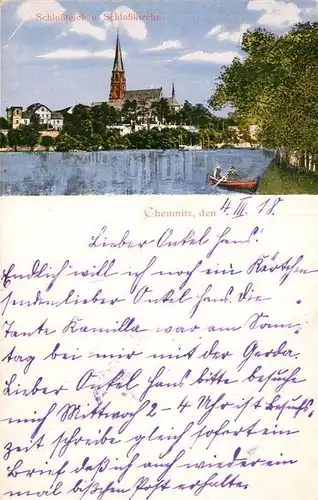 Schloßteich u. Schloßkirche
Chemnitz, den 4. III. 18.
Lieber Onkel Hans!
Endlich will ich noch ein Kärtchen
senden lieber Onkel Hans. Die
Tante Kamilla war am Sonn-
tag bei mir mit der Gerda.
Lieber Onkel Hans bitte besuche
mich Mittwoch 2-4 Uhr ist Besuchs-
zeit schreibe gleich sofort ein
Brief daß ich auch wieder ein
mal bißchen Post erhalte.